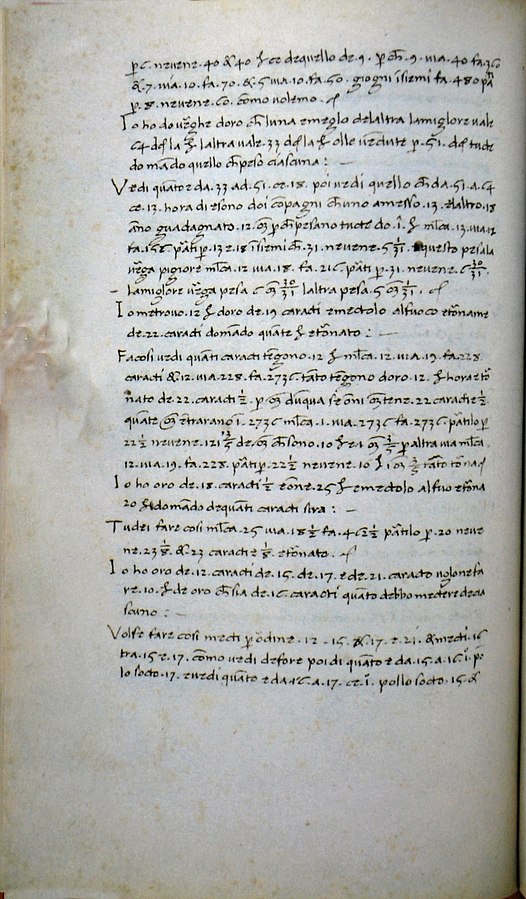 p 6. nevene .40 & 40 ℔ ce de quello de .9. p ch .9. via .40 fa .36
& .7. via .10. fa .70. & 5 via .10. fa .50. giogni isiemi fa .480 pa
p .8. nevene .60. como volemo.
Io ho do verghe doro ch luna e meglo delaltra lamiglore vale
64 d la ℔ laltra vale .33 d la ℔ olle vendute p .51. d tucte
domando quello ch peso ciascuna : —
Vedi quanto e da .33 ad .51. ce .18. poi vedi quello ch da .51. a .64
ce .13. hora di e sono doi compagni ch uno a messo .13. elaltro .18
ano guadagnato .12. p ch pesano tucte do .1. ℔ mca .13. via .12
fa .156 parti p .13 e .18 isiemi ch .31. nevene .5 1/31. questo pesa la
verga pigiore mca .12 via .18. fa .216 parti p .31. nevene .6 30/31.
lamiglore verga pesa 6 30/31 laltra pesa .5 1/31.
Io metrovo .12 ℔ doro de .19 caracti emectolo alfuoco etorname
de .22. caracti domado quante ℔ etornato : —
Fa cosi vedi quati caracti tengono .12 ℔ mca .12. via .19. fa .228.
caracti & 12. via .228. fa .2736. tato tengono doro .12. ℔ hora e tor
nato de .22. caracti 1/2. p dunqua se oni tene .22 caracti e 1/2.
quante etrarano .2736 mca .1. via .2736 fa .2736. partilo p
22 1/2 nevene .121 3/5 de ch sono .10 ℔ e 1 3/5 p altra via mca.
12. via .19. fa .228. parti p .22 1/2 nevene .10 ℔ 1 3/5 tato torna
Io ho oro de .18. caracti 1/2 e one .25 ℔ emectolo alfuo etorna
20 ℔ domado dequanti caracti sira : —
Tu dei fare cosi mca .25 via .18 1/2 fa .462 1/2 partilo p .20 neve
ne .23 1/8. & 23 caracti e 1/8. etornato.
Io ho oro de .12. caracti de .15. de .17. e de .21. caracto voglone fa
re .10. ℔ de oro ch sia de .16. caracti quanto debbo mectere de cia
scuno : —
Volse fare cosi mecti p ordine .12 - 15. & .17. e .21. & mecti .16
tra .15 e .17. como vedi de fore poi di quanto e da .15. a .16 .1. po
lo socto .17. e vedi quanto e da .16. a .17. ce .1. pollo socto .15. &